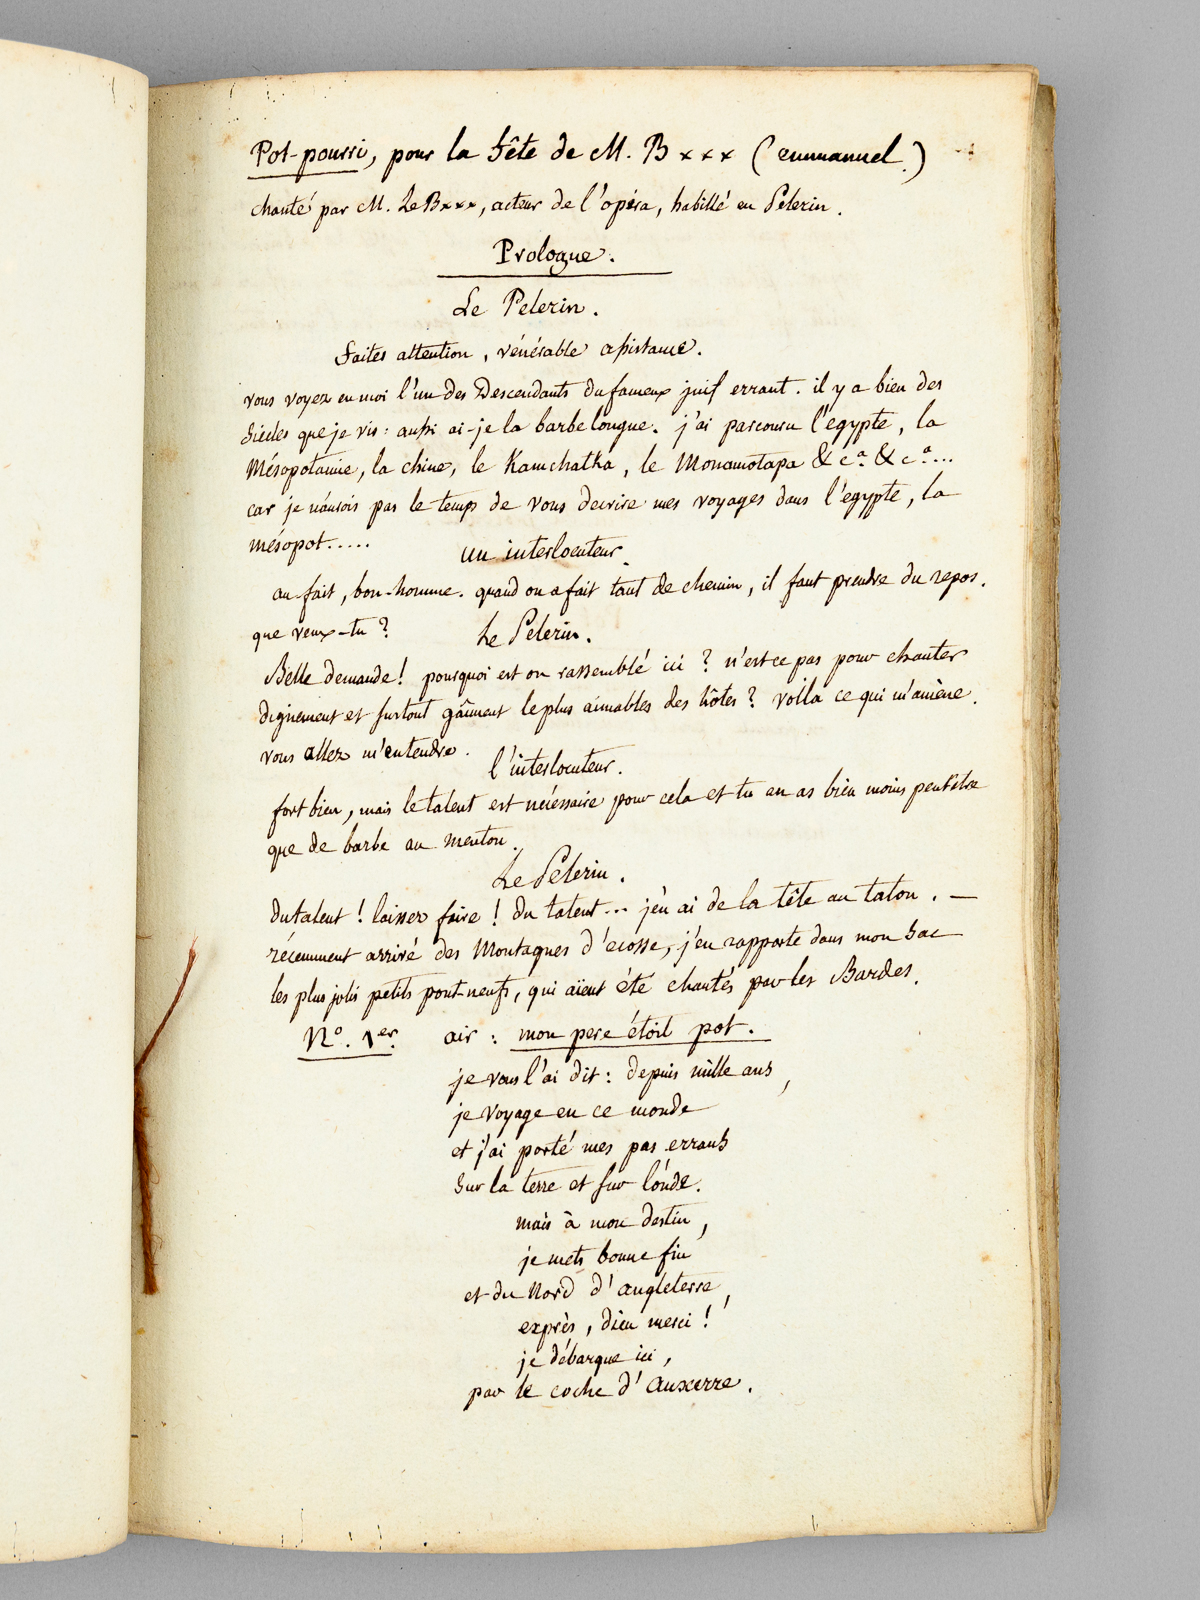 Pot-pourri, pour la fête de M. B××× (emmanuel.)
chanté par M. Le B×××, acteur de l'opéra, habillé en Pelerin.
Prologue.
Le Pelerin.
faites attention, vénérable assistance.
vous voyez en moi l'un des Descendants du fameux juif errant. il y a bien des
siècles que je vis : aussi ai-je la barbe longue. j'ai parcouru l'egypte, la
Mésopotamie, la chine, le Kamchatka, le Monamotapa & ca. & ca....
car je n'aurois pas le temps de vous decrire mes voyages dans l'egypte, la
mésopot.....
un interlocuteur.
au fait, bon-homme. quand on a fait tant de chemin, il faut prendre du repos.
que veux-tu ?
Le Pelerin.
Belle demande ! pourquoi est on rassemblé ici ? n'est ce pas pour chanter
dignement et surtout gâiment le plus aimables des hôtes ? voilà ce qui m'amène.
vous allez m'entendre.
l'interlocuteur.
fort bien, mais le talent est nécessaire pour cela et tu en as bien moins peutêtre
que de barbe au menton.
Le Pelerin.
du talent ! laissez faire ! du talent... j'en ai de la tête au talon. —
récemment arrivé des Montagnes d'ecosse, j'en rapporte dans mon sac
les plus jolis petits pont-neufs, qui aïent été chantés par les Bardes.
No. 1er. air : mon pere étoit pot.
je vous l'ai dit : depuis mille ans,
je voyage en ce monde
et j'ai porté mes pas errans
sur la terre et sur l'onde.
mais à mon destin,
je mets bonne fin
et du Nord d'angleterre,
exprès, dieu merci !
je débarque ici,
par le coche d'auxerre.